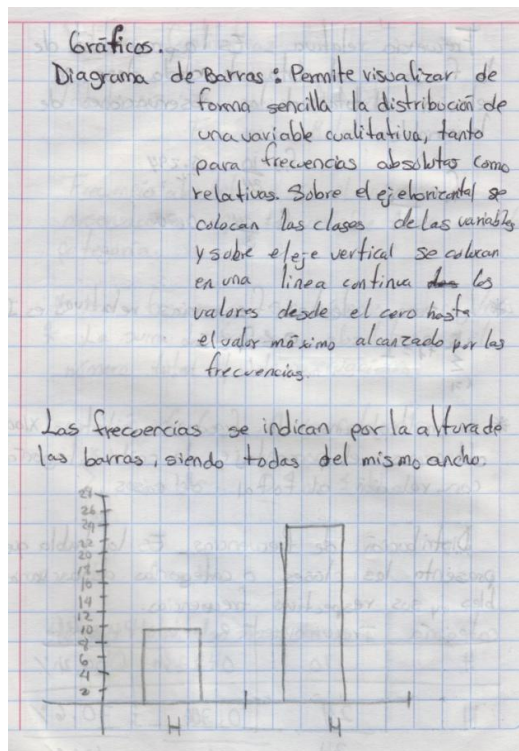 Gráficos.
Diagrama de Barras: Permite visualizar de
forma sencilla la distribución de
una variable cualitativa, tanto
para frecuencias absolutas como
relativas. Sobre el eje horizontal se
colocan las clases de las variables
y sobre el eje vertical se colocan
en una linea continua los
valores desde el cero hasta
el valor máximo alcanzado por las
frecuencias.
Las frecuencias se indican por la altura de
las barras, siendo todas del mismo ancho.
28
26
24
22
20
18
16
14
12
10
8
6
4
2
H H